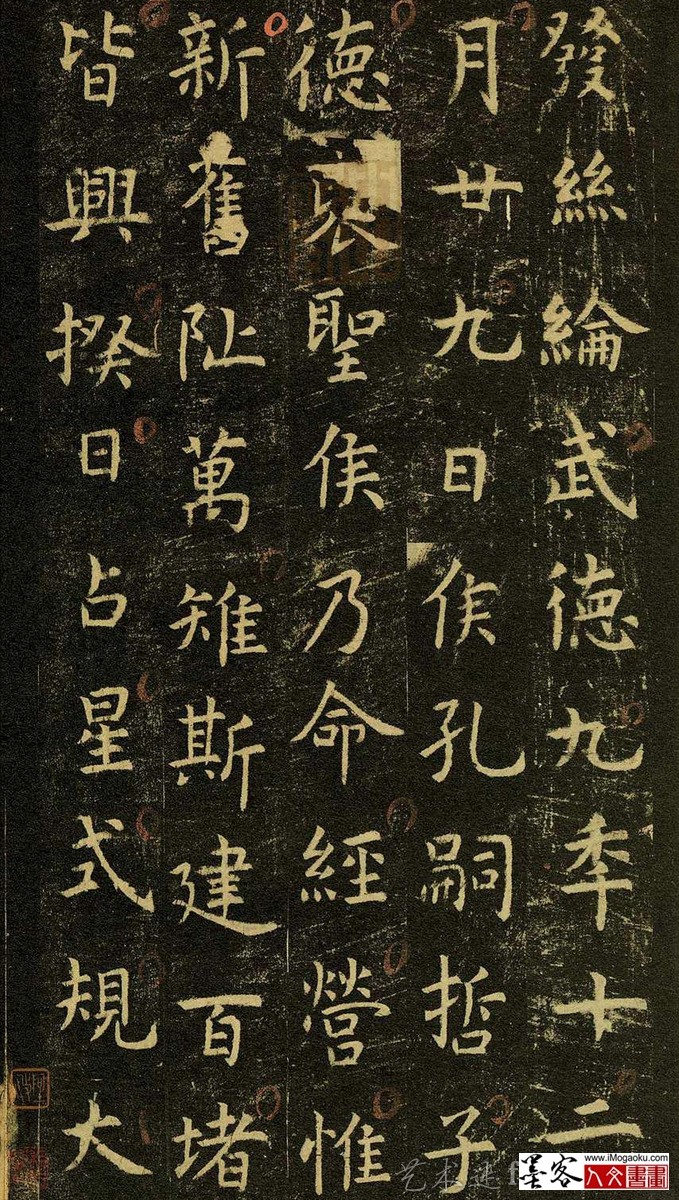 發絲綸武德九秊十二
月廿九日侯孔嗣哲子
德襃聖侯乃命經營惟
新舊阯萬雉斯建百堵
皆興揆日占星式規大
www.iMogaoku.com
墨客人文書畫